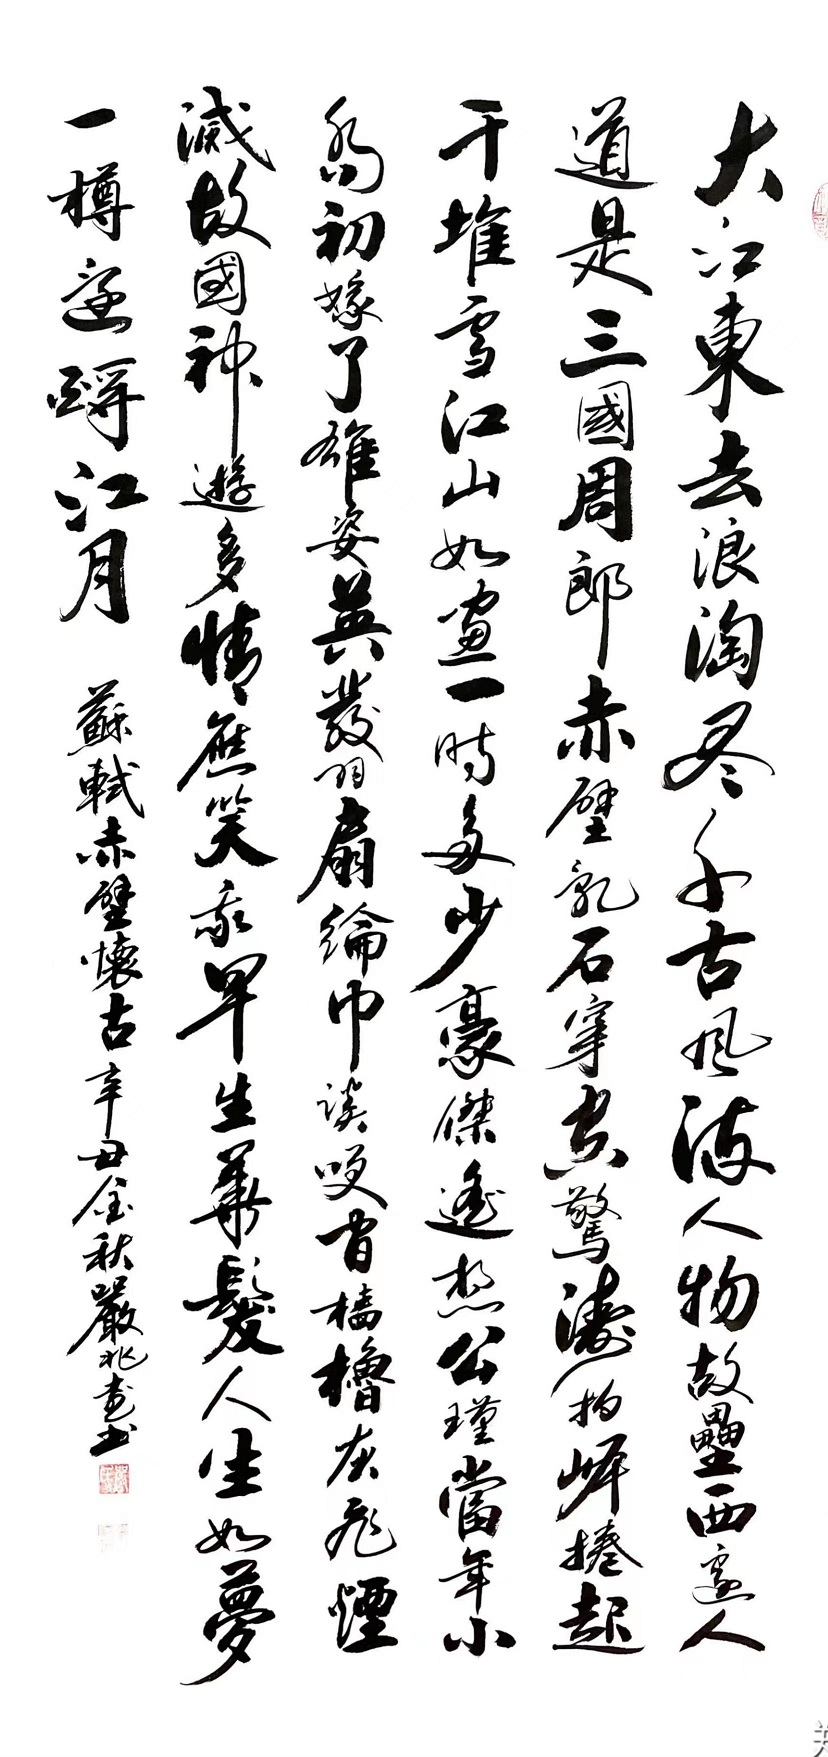 大江東去浪淘尽千古風流人物故壘西邊人
道是三國周郎赤壁乱石穿空驚濤拍岸捲起
千堆雪江山如畫一時多少豪傑遙想公瑾當年小
喬初嫁了雄姿英發羽扇綸巾談笑間檣櫓灰飛煙
滅故國神遊多情應笑我早生華髮人生如夢
一樽還酹江月
蘇軾赤壁懷古辛丑金秋嚴兆書